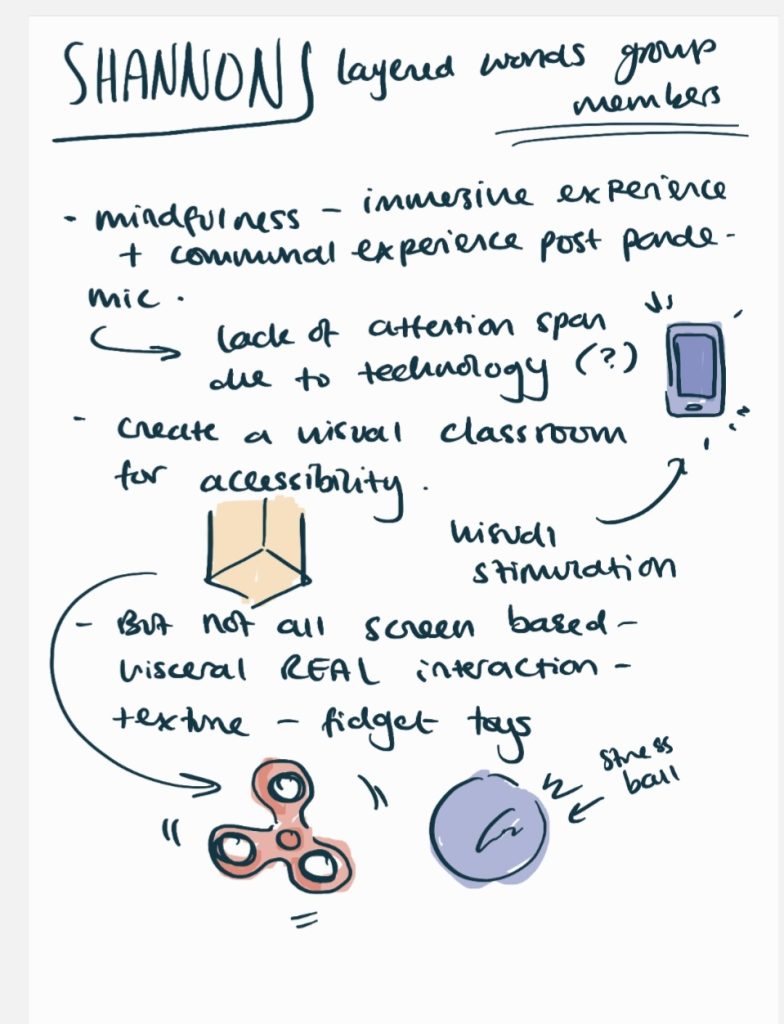 SHANNONS layered words group
members
- mindfulness - immersive experience
+ communal experience post pande-
mic.
lack of attention span
due to technology (?)
- create a visual classroom
for accessibility.
visual
stimulation
- But not all screen based -
visceral REAL interaction -
texture - fidget toys
stress
ball